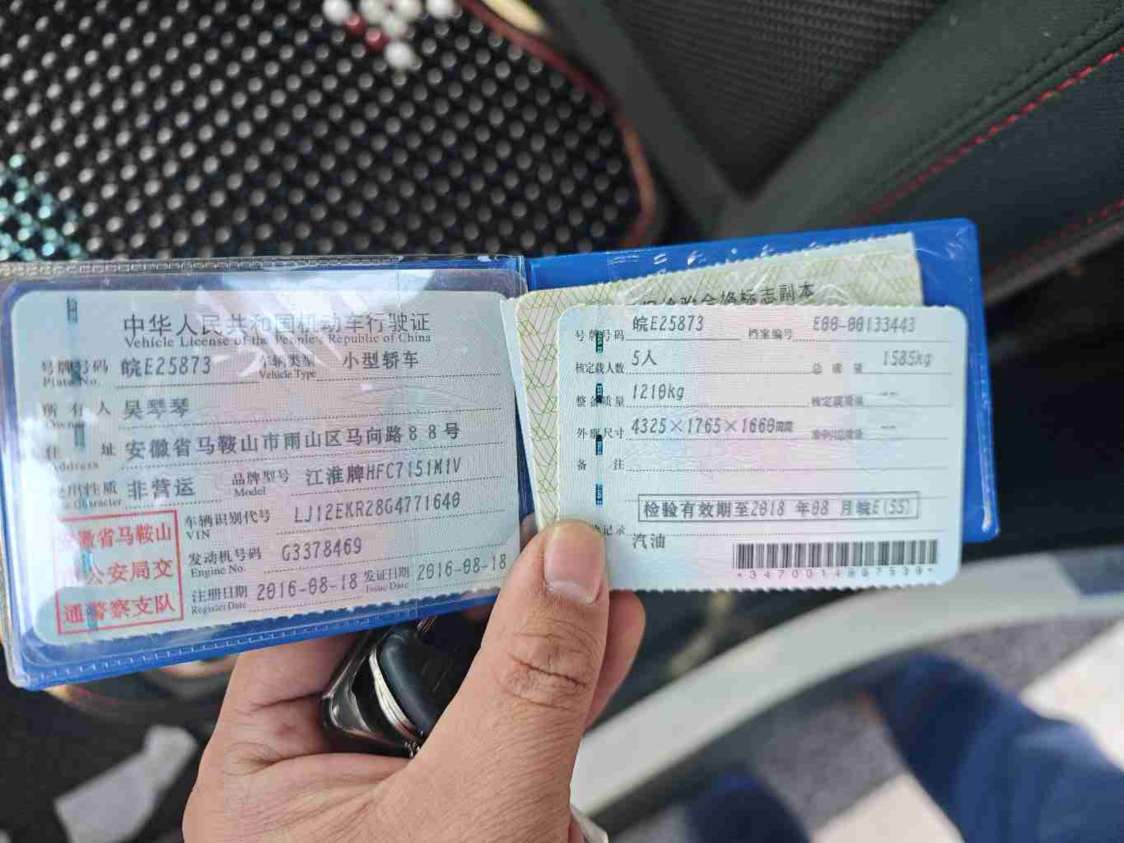 中华人民共和国机动车行驶证
Vehicle License of the People's Republic of China
号牌号码 皖E25873 车辆类型 小型轿车
Plate No. Vehicle Type
所有人 吴琴琴
Owner
住址 安徽省马鞍山市雨山区马向路88号
Address
使用性质 非营运 品牌型号 江淮牌HFC7151M1V
Use Character Model
安徽省马鞍山
市公安局交
通警察支队
车辆识别代号 LJ12EKR28G4771640
VIN
发动机号码 G3378469
Engine No.
注册日期 2016-08-18 发证日期 2016-08-18
Register Date Issue Date
检验合格标志副本
号牌号码 皖E25873 档案编号 E00-00133443
核定载人数 5人 总质量 1585kg
整备质量 1210kg 核定载质量 --
外廓尺寸 4325×1765×1660mm --
备注
检验有效期至2018年08月皖E(SS)
检验记录
汽油